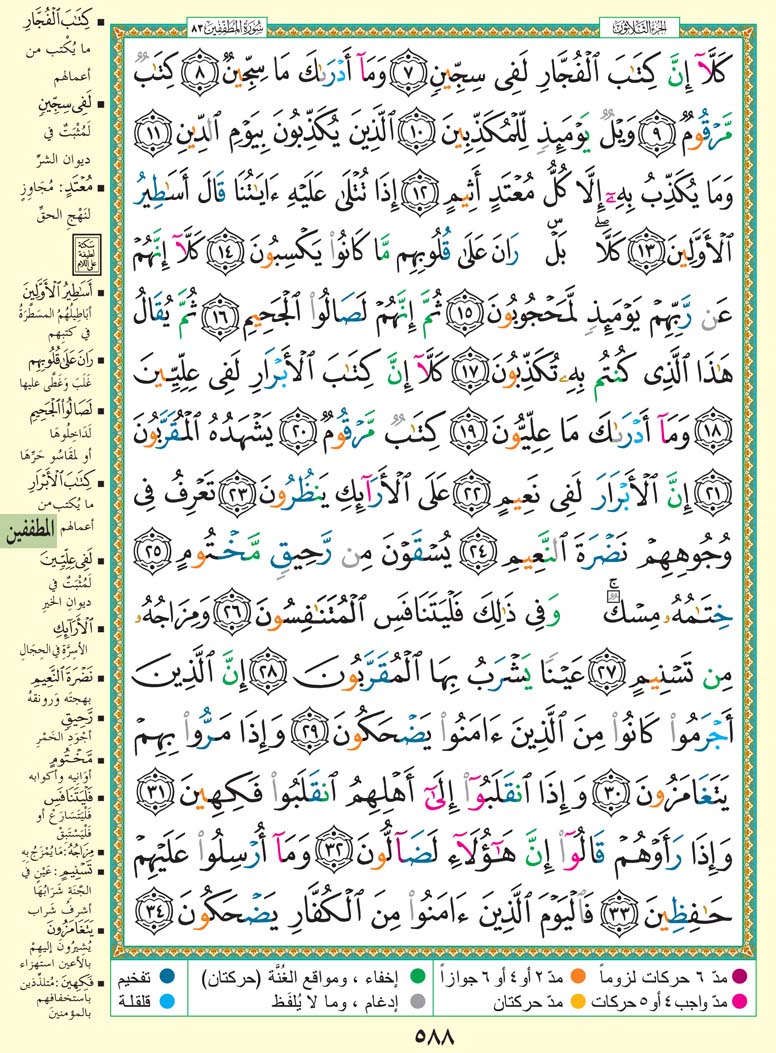 سُورَةُ المُطَفِّفِين ٨٣
الجزء الثلاثون
كَلَّآ إِنَّ كِتَٰبَ ٱلْفُجَّارِ لَفِى سِجِّينٍ ٧ وَمَآ أَدْرَىٰكَ مَا سِجِّينٌ ٨ كِتَٰبٌ
مَّرْقُومٌ ٩ وَيْلٌ يَوْمَئِذٍ لِّلْمُكَذِّبِينَ ١٠ ٱلَّذِينَ يُكَذِّبُونَ بِيَوْمِ ٱلدِّينِ ١١
وَمَا يُكَذِّبُ بِهِۦٓ إِلَّا كُلُّ مُعْتَدٍ أَثِيمٍ ١٢ إِذَا تُتْلَىٰ عَلَيْهِ ءَايَٰتُنَا قَالَ أَسَٰطِيرُ
ٱلْأَوَّلِينَ ١٣ كَلَّا ۖ بَلْ ۜ رَانَ عَلَىٰ قُلُوبِهِم مَّا كَانُوا۟ يَكْسِبُونَ ١٤ كَلَّآ إِنَّهُمْ
عَن رَّبِّهِمْ يَوْمَئِذٍ لَّمَحْجُوبُونَ ١٥ ثُمَّ إِنَّهُمْ لَصَالُوا۟ ٱلْجَحِيمِ ١٦ ثُمَّ يُقَالُ
هَٰذَا ٱلَّذِى كُنتُم بِهِۦ تُكَذِّبُونَ ١٧ كَلَّآ إِنَّ كِتَٰبَ ٱلْأَبْرَارِ لَفِى عِلِّيِّينَ
١٨ وَمَآ أَدْرَىٰكَ مَا عِلِّيُّونَ ١٩ كِتَٰبٌ مَّرْقُومٌ ٢٠ يَشْهَدُهُ ٱلْمُقَرَّبُونَ
٢١ إِنَّ ٱلْأَبْرَارَ لَفِى نَعِيمٍ ٢٢ عَلَى ٱلْأَرَآئِكِ يَنظُرُونَ ٢٣ تَعْرِفُ فِى
وُجُوهِهِمْ نَضْرَةَ ٱلنَّعِيمِ ٢٤ يُسْقَوْنَ مِن رَّحِيقٍ مَّخْتُومٍ ٢٥
خِتَٰمُهُۥ مِسْكٌ ۚ وَفِى ذَٰلِكَ فَلْيَتَنَافَسِ ٱلْمُتَنَٰفِسُونَ ٢٦ وَمِزَاجُهُۥ
مِن تَسْنِيمٍ ٢٧ عَيْنًا يَشْرَبُ بِهَا ٱلْمُقَرَّبُونَ ٢٨ إِنَّ ٱلَّذِينَ
أَجْرَمُوا۟ كَانُوا۟ مِنَ ٱلَّذِينَ ءَامَنُوا۟ يَضْحَكُونَ ٢٩ وَإِذَا مَرُّوا۟ بِهِمْ
يَتَغَامَزُونَ ٣٠ وَإِذَا ٱنقَلَبُوٓا۟ إِلَىٰٓ أَهْلِهِمُ ٱنقَلَبُوا۟ فَكِهِينَ ٣١
وَإِذَا رَأَوْهُمْ قَالُوٓا۟ إِنَّ هَٰٓؤُلَآءِ لَضَآلُّونَ ٣٢ وَمَآ أُرْسِلُوا۟ عَلَيْهِمْ
حَٰفِظِينَ ٣٣ فَٱلْيَوْمَ ٱلَّذِينَ ءَامَنُوا۟ مِنَ ٱلْكُفَّارِ يَضْحَكُونَ ٣٤
كِتَٰبَ ٱلْفُجَّارِ
ما يُكْتب من
أعمالهم
لَفِى سِجِّينٍ
لَمُثْبَتٌ في
ديوان الشرِّ
مُعْتَدٍ: مُجَاوِزٍ
لنَهْجِ الحقِّ
سكتة
لطيفة
على اللام
أَسَٰطِيرُ ٱلْأَوَّلِينَ
أباطِيلُهُمُ المسَطَّرَةُ
في كتبِهم
رَانَ عَلَىٰ قُلُوبِهِم
غَلَبَ وَغَطَّى عليها
لَصَالُوا۟ ٱلْجَحِيمِ
لَدَاخِلُوهَا
أو لمقَاسُو حَرِّهَا
كِتَٰبَ ٱلْأَبْرَارِ
ما يُكتب من
أعمالهم
المطففين
لَفِى عِلِّيِّينَ
لَمُثْبَتٌ في
ديوانِ الخيرِ
ٱلْأَرَآئِكِ
الأسِرَّةِ في الحِجَالِ
نَضْرَةَ ٱلنَّعِيمِ
بهجته وَرونقهُ
رَّحِيقٍ
أجْوَدِ الخَمْرِ
مَّخْتُومٍ
أوانيه وأكوابه
فَلْيَتَنَافَسِ
فَلْيَتَسَارَعْ أو
فَلْيَسْتَبِقْ
مِزَاجُهُ: مَا يُمْزَجُ بِهِ
تَسْنِيمٍ: عَيْنٍ في
الجنَّة شَرَابُهَا
أشرفُ شراب
يَتَغَامَزُونَ
يُشِيرُونَ إليهِمْ
بالأعين استهزاء
فَكِهِينَ: مُتلذذين
باستخفافِهم
بالمؤمنين
مدّ ٦ حركات لزوماً مدّ ٢ أو ٤ أو ٦ جوازاً إخفاء ، ومواقع الغُنَّة (حركتان) تفخيم
مدّ واجب ٤ أو ٥ حركات مدّ حركتان إدغام ، وما لا يُلفَظ قلقلة
٥٨٨